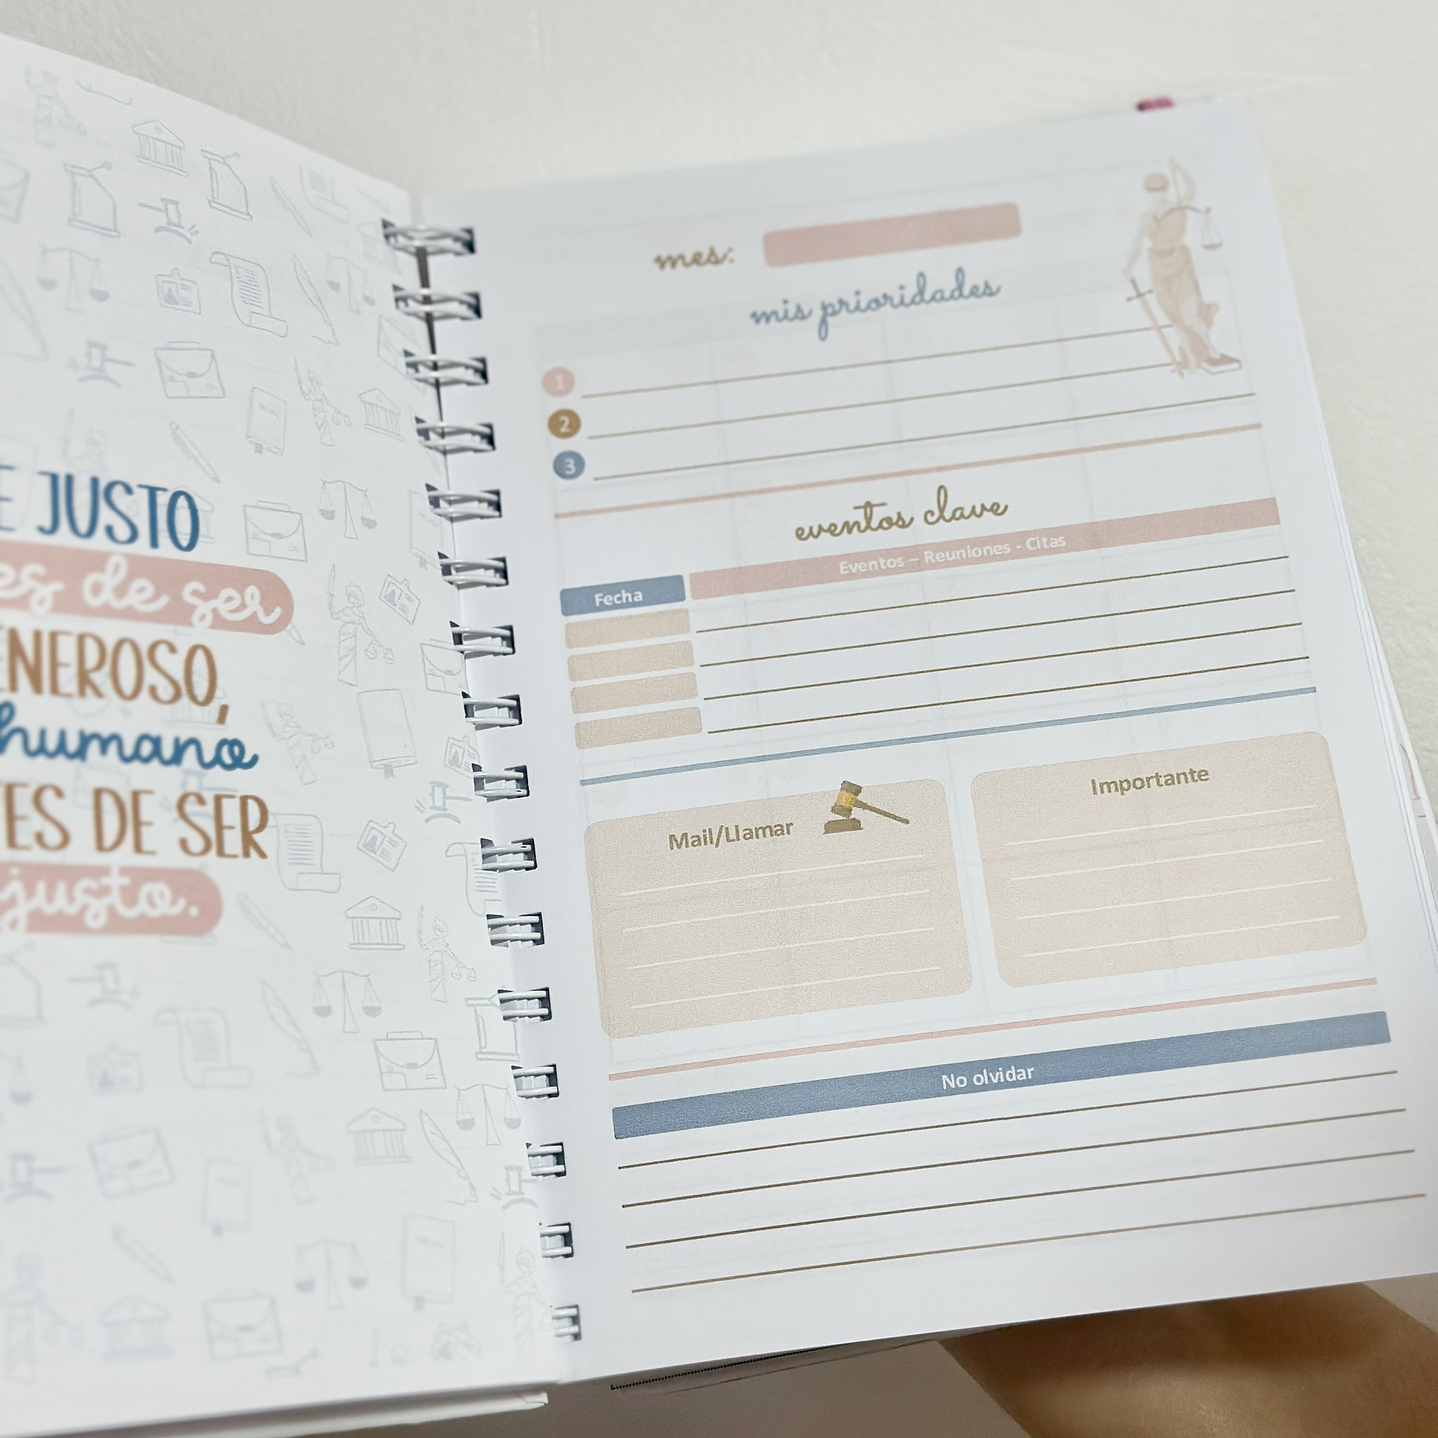 JUSTO
de ser
humano
DE SER
justo.
mes:
mis prioridades
1
2
3
eventos clave
Eventos – Reuniones - Citas
Fecha
Mail/Llamar
Importante
No olvidar